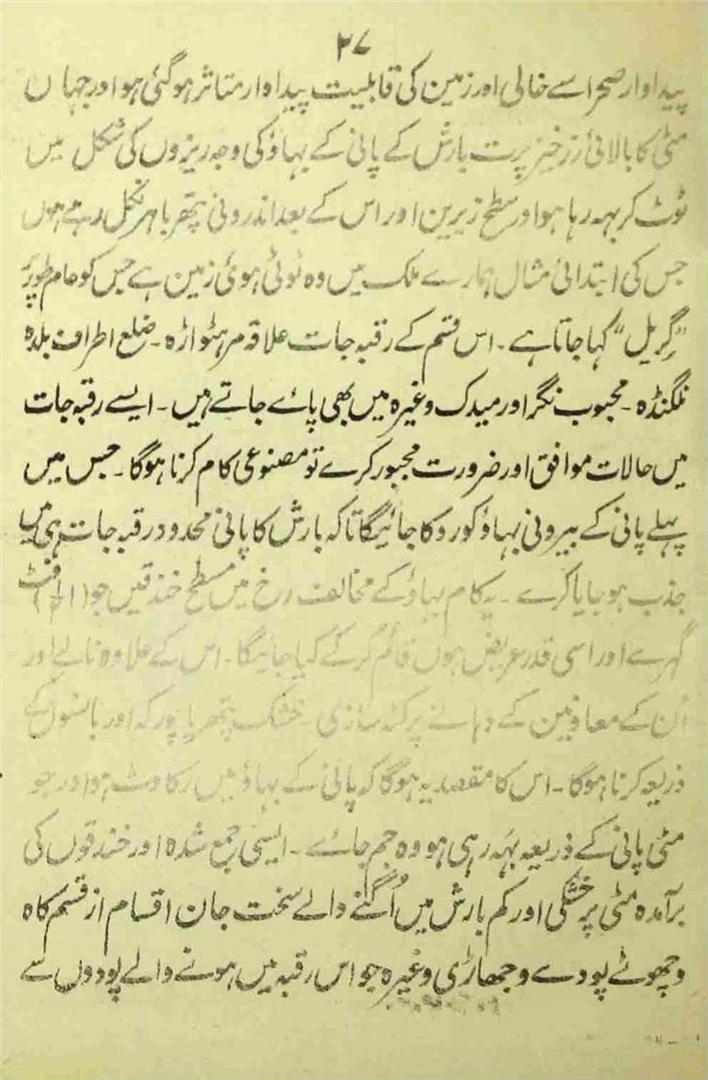 ۲۷
پیداوار صحرا سے خالی اور زمین کی قابلیت پیداوار متاثر ہوگئی ہو اور جہاں
مٹی کا بالائی زرخیز پرت بارش کے پانی کے بہاؤ کی وجہ ریزوں کی شکل میں
ٹوٹ کر بہہ رہا ہو اور سطح زیرین اور اس کے بعد اندرونی پتھر باہر نکل رہے ہوں
جس کی ابتدائی مثال ہمارے ملک میں وہ ٹوٹی ہوئی زمین ہے جس کو عام طور پر
”گریل“ کہا جاتا ہے ۔ اس قسم کے رقبہ جات علاقہ مرہٹواڑہ ۔ ضلع اطراف بلدہ
نلگنڈہ ۔ محبوب نگر اور میدک وغیرہ میں بھی پائے جاتے ہیں ۔ ایسے رقبہ جات
میں حالات موافق اور ضرورت مجبور کرے تو مصنوعی کام کرنا ہوگا ۔ جس میں
پہلے پانی کے بیرونی بہاؤ کو روکا جائیگا تاکہ بارش کا پانی محدود رقبہ جات ہی میں
جذب ہو جایا کرے ۔ یہ کام بہاؤ کے مخالف رخ میں مسطح خندقیں جو فٹ
گہرے اور اسی قدر عریض ہوں قائم کرکے کیا جائیگا ۔ اس کے علاوہ نالے اور
اُن کے معاونین کے دہانے پر کٹہ سازی ۔ خشک پتھر یا پورکہ اور بانسوں کے
ذریعہ کرنا ہوگا ۔ اس کا مقصد یہ ہوگا کہ پانی کے بہاؤ میں رکاوٹ ہو اور جو
مٹی پانی کے ذریعہ بہہ رہی ہو وہ جم جائے ۔ ایسی جمع شدہ اور خندقوں کی
برآمدہ مٹی پر خشکی اور کم بارش میں اُگنے والے سخت جان اقسام از قسم کاہ
و چھوٹے پودے و جھاڑی وغیرہ جو اس رقبہ میں ہونے والے پودوں سے